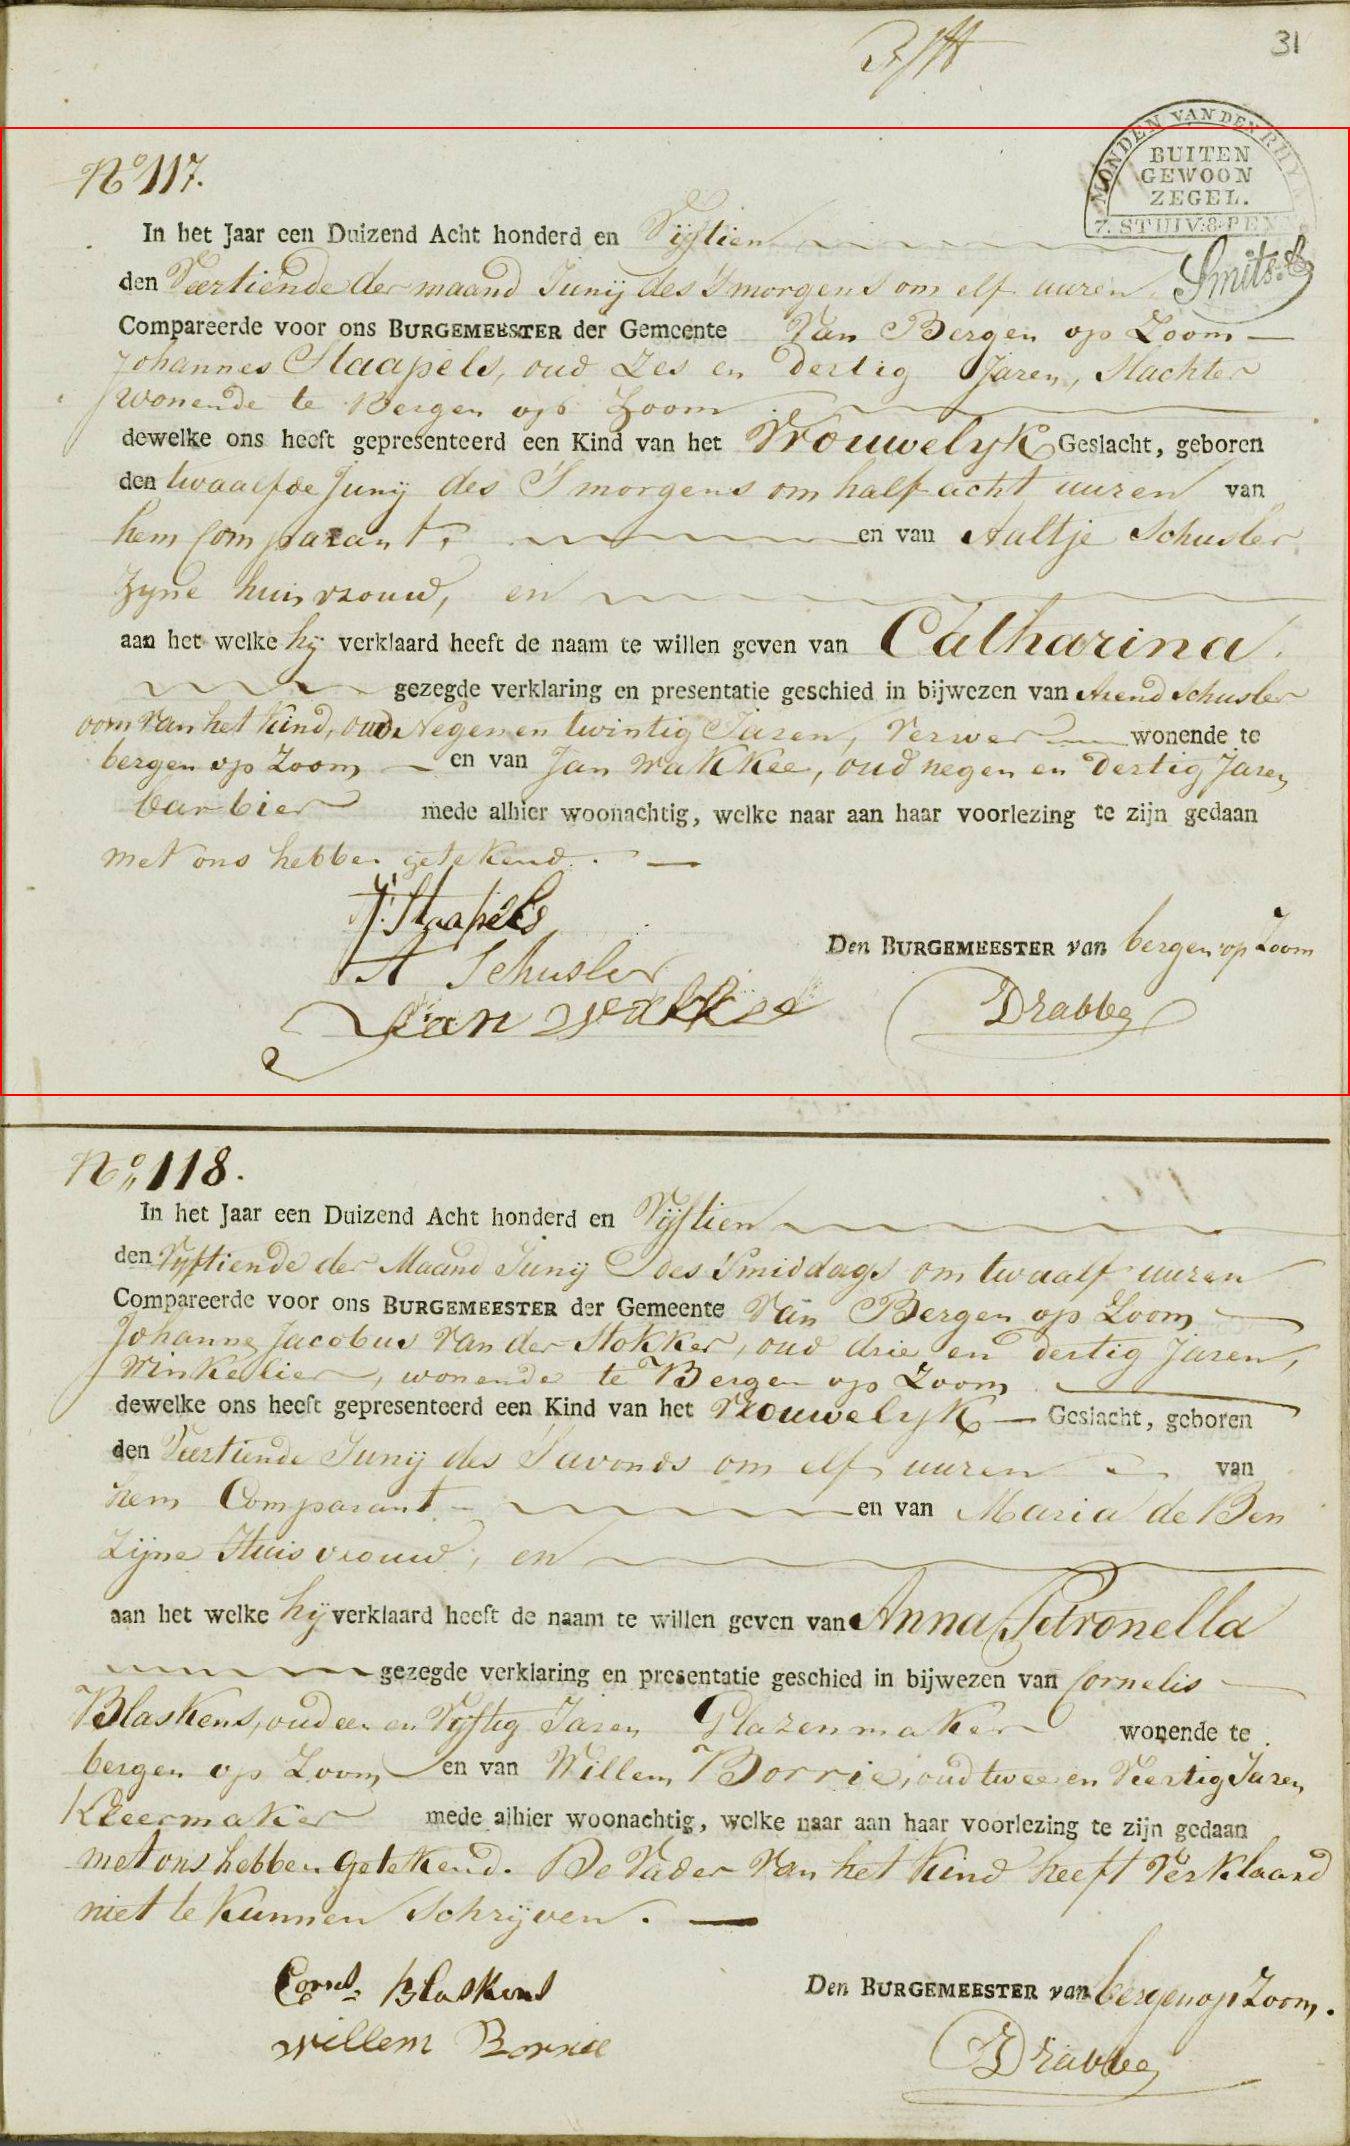 31
MONDEN VAN DEN RHYN
BUITEN
GEWOON
ZEGEL.
7. STUIV: 8 PENN
Smits
No 117.
In het Jaar een Duizend Acht honderd en Vijftien
den Veertiende der maand Junij des Smorgens om elf uuren
Compareerde voor ons BURGEMEESTER der Gemeente Van Bergen op Zoom
Johannes Staapels, oud Zes en Dertig Jaren, Slachter
wonende te Bergen op Zoom
dewelke ons heeft gepresenteerd een Kind van het Vrouwelyk Geslacht, geboren
den twaalfde Junij des Smorgens om half acht uuren van
hem Comparant, en van Aaltje Schusler
Zyne huisvrouw, en
aan het welke hij verklaard heeft de naam te willen geven van Catharina.
gezegde verklaring en presentatie geschied in bijwezen van Arend Schusler
oom van het Kind, oud Negen en twintig Jaren, Verwer wonende te
bergen op Zoom en van Jan Wakkee, oud negen en Dertig Jaren
barbier mede alhier woonachtig, welke naar aan haar voorlezing te zijn gedaan
met ons hebben getekend.
J: Staapels
A Schusler
Jan Wakkee
Den BURGEMEESTER van bergen op Zoom
Drabbe
No 118.
In het Jaar een Duizend Acht honderd en Vijftien
den Vyftiende der Maand Junij des Smiddags om twaalf uuren
Compareerde voor ons BURGEMEESTER der Gemeente Van Bergen op Zoom
Johannes Jacobus van der Stokker, oud drie en dertig Jaren,
Winkelier, wonende te Bergen op Zoom
dewelke ons heeft gepresenteerd een Kind van het Vrouwelyk Geslacht, geboren
den Veertiende Junij des Savonds om elf uuren van
hem Comparant en van Maria de Ben
Zijne Huisvrouw, en
aan het welke hij verklaard heeft de naam te willen geven van Anna Petronella
gezegde verklaring en presentatie geschied in bijwezen van Cornelis
Blaskens, oud een en Vyftig Jaren Glazenmaker wonende te
bergen op Zoom en van Willem Borrie, oud twee en Veertig Jaren
Kleermaker mede alhier woonachtig, welke naar aan haar voorlezing te zijn gedaan
met ons hebben getekend. De Vader van het Kind heeft Verklaard
niet te Kunnen Schrijven.
Cornls Blaskens
Willem Borrie
Den BURGEMEESTER van bergen op Zoom.
Drabbe